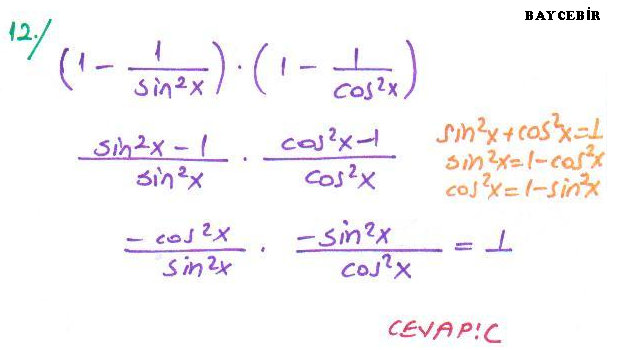 BAYCEBİR
12./
(1 - 1/sin²x) · (1 - 1/cos²x)
sin²x - 1/sin²x · cos²x - 1/cos²x
sin²x + cos²x = 1
sin²x = 1 - cos²x
cos²x = 1 - sin²x
- cos²x/sin²x · - sin²x/cos²x = 1
CEVAP: C